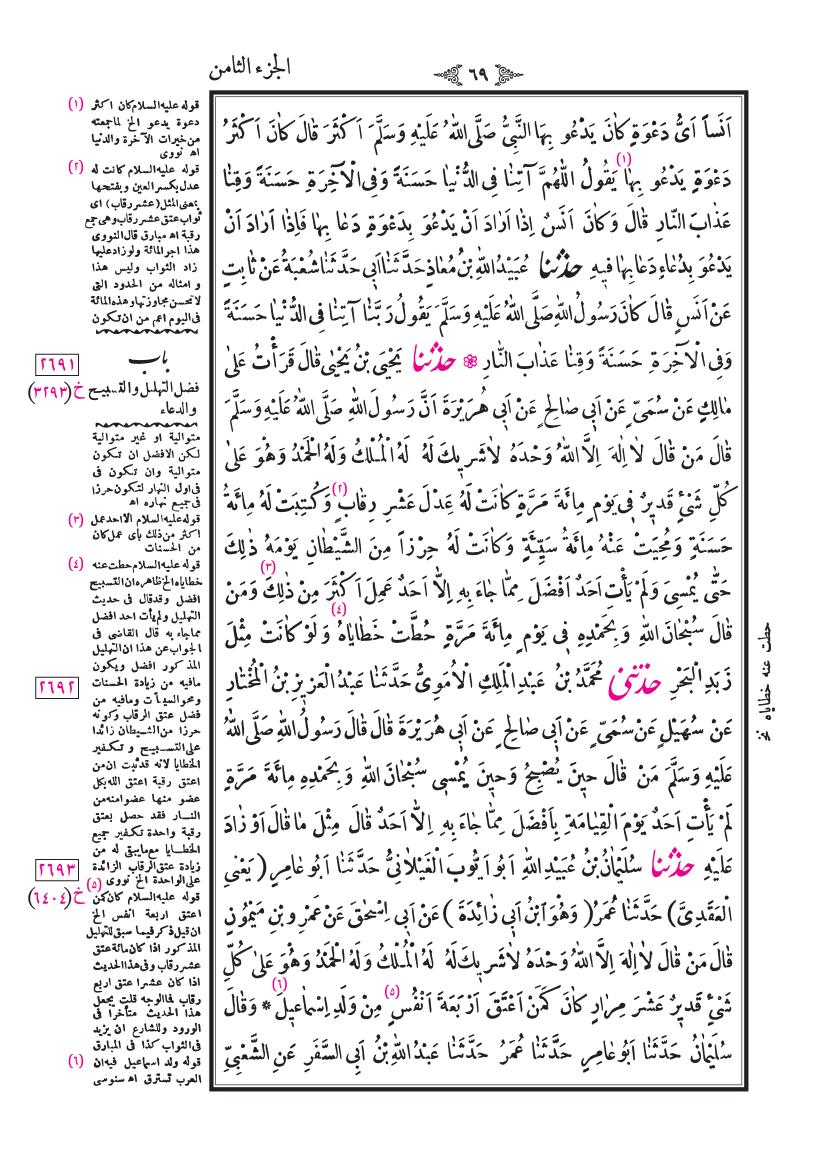 ٦٩
الجزء الثامن
اَنَساً اَىُّ دَعْوَةٍ كَانَ يَدْعُو بِهَا النَّبِىُّ صَلَّى اللهُ عَلَيْهِ وَسَلَّمَ اَكْثَرَ قَالَ كَانَ اَكْثَرُ
دَعْوَةٍ يَدْعُو بِهَا (١) يَقُولُ اللّٰهُمَّ آتِنَا فِى الدُّنْيَا حَسَنَةً وَفِى الْآخِرَةِ حَسَنَةً وَقِنَا
عَذَابَ النَّارِ قَالَ وَكَانَ اَنَسٌ اِذَا اَرَادَ اَنْ يَدْعُوَ بِدَعْوَةٍ دَعَا بِهَا فَاِذَا اَرَادَ اَنْ
يَدْعُوَ بِدُعَاءٍ دَعَا بِهَا فِيهِ حَدَّثَنَا عُبَيْدُ اللهِ بْنُ مُعَاذٍ حَدَّثَنَا اَبِى حَدَّثَنَا شُعْبَةُ عَنْ ثَابِتٍ
عَنْ اَنَسٍ قَالَ كَانَ رَسُولُ اللهِ صَلَّى اللهُ عَلَيْهِ وَسَلَّمَ يَقُولُ رَبَّنَا آتِنَا فِى الدُّنْيَا حَسَنَةً
وَفِى الْآخِرَةِ حَسَنَةً وَقِنَا عَذَابَ النَّارِ ❁ حَدَّثَنَا يَحْيَى بْنُ يَحْيَى قَالَ قَرَأْتُ عَلَى
مَالِكٍ عَنْ سُمَىٍّ عَنْ اَبِى صَالِحٍ عَنْ اَبِى هُرَيْرَةَ اَنَّ رَسُولَ اللهِ صَلَّى اللهُ عَلَيْهِ وَسَلَّمَ
قَالَ مَنْ قَالَ لَا اِلٰهَ اِلَّا اللهُ وَحْدَهُ لَا شَرِيكَ لَهُ لَهُ الْمُلْكُ وَلَهُ الْحَمْدُ وَهُوَ عَلَى
كُلِّ شَىْءٍ قَدِيرٌ فِى يَوْمٍ مِائَةَ مَرَّةٍ كَانَتْ لَهُ عِدْلَ عَشْرِ رِقَابٍ (٢) وَكُتِبَتْ لَهُ مِائَةُ
حَسَنَةٍ وَمُحِيَتْ عَنْهُ مِائَةُ سَيِّئَةٍ وَكَانَتْ لَهُ حِرْزاً مِنَ الشَّيْطَانِ يَوْمَهُ ذٰلِكَ
حَتَّى يُمْسِىَ وَلَمْ يَأْتِ اَحَدٌ اَفْضَلَ مِمَّا جَاءَ بِهِ اِلَّا اَحَدٌ (٣) عَمِلَ اَكْثَرَ مِنْ ذٰلِكَ وَمَنْ
قَالَ سُبْحَانَ اللهِ وَبِحَمْدِهِ فِى يَوْمٍ مِائَةَ مَرَّةٍ حُطَّتْ خَطَايَاهُ (٤) وَلَوْ كَانَتْ مِثْلَ
زَبَدِ الْبَحْرِ حَدَّثَنِى مُحَمَّدُ بْنُ عَبْدِ الْمَلِكِ الْاُمَوِىُّ حَدَّثَنَا عَبْدُ الْعَزِيزِ بْنُ الْمُخْتَارِ
عَنْ سُهَيْلٍ عَنْ سُمَىٍّ عَنْ اَبِى صَالِحٍ عَنْ اَبِى هُرَيْرَةَ قَالَ قَالَ رَسُولُ اللهِ صَلَّى اللهُ
عَلَيْهِ وَسَلَّمَ مَنْ قَالَ حِينَ يُصْبِحُ وَحِينَ يُمْسِى سُبْحَانَ اللهِ وَبِحَمْدِهِ مِائَةَ مَرَّةٍ
لَمْ يَأْتِ اَحَدٌ يَوْمَ الْقِيَامَةِ بِاَفْضَلَ مِمَّا جَاءَ بِهِ اِلَّا اَحَدٌ قَالَ مِثْلَ مَا قَالَ اَوْ زَادَ
عَلَيْهِ حَدَّثَنَا سُلَيْمَانُ بْنُ عُبَيْدِ اللهِ اَبُو اَيُّوبَ الْغَيْلَانِىُّ حَدَّثَنَا اَبُو عَامِرٍ ( يَعْنِى
الْعَقَدِىَّ ) حَدَّثَنَا عُمَرُ ( وَهُوَ ابْنُ اَبِى زَائِدَةَ ) عَنْ اَبِى اِسْحٰقَ عَنْ عَمْرِو بْنِ مَيْمُونٍ
قَالَ مَنْ قَالَ لَا اِلٰهَ اِلَّا اللهُ وَحْدَهُ لَا شَرِيكَ لَهُ لَهُ الْمُلْكُ وَلَهُ الْحَمْدُ وَهُوَ عَلَى كُلِّ
شَىْءٍ قَدِيرٌ عَشْرَ مِرَارٍ كَانَ كَمَنْ اَعْتَقَ اَرْبَعَةَ اَنْفُسٍ (٥) مِنْ وَلَدِ اِسْمَاعِيلَ (٦) * وَقَالَ
سُلَيْمَانُ حَدَّثَنَا اَبُو عَامِرٍ حَدَّثَنَا عُمَرُ حَدَّثَنَا عَبْدُ اللهِ بْنُ اَبِى السَّفَرِ عَنِ الشَّعْبِىِّ
(١) قوله عليه السلام كان اكثر
دعوة يدعو الخ لما جمعته
من خيرات الآخرة والدنيا
اه نووى
(٢) قوله عليه السلام كانت له
عدل بكسر العين وبفتحها
بمعنى المثل (عشر رقاب) اى
ثواب عتق عشر رقاب وهى جمع
رقبة اه مبارق قال النووى
هذا اجر المائة ولو زاد عليها
زاد الثواب وليس هذا
وامثاله من الحدود التى
لا تحسن مجاوزتها وهذه المائة
فى اليوم اعم من ان تكون
باب
٢٦٩١
فضل التهليل والتسبيح
خ (٣٢٩٣)
والدعاء
متوالية او غير متوالية
لكن الافضل ان تكون
متوالية وان تكون فى
فى اول النهار لتكون حرزا
فى جميع نهاره اه
(٣) قوله عليه السلام الا احد عمل
اكثر من ذلك باى عمل كان
من الحسنات
(٤) قوله عليه السلام حطت عنه
خطاياه الخ ظاهره ان التسبيح
افضل وقد قال فى حديث
التهليل ولم يأت احد افضل
مما جاء به قال القاضى فى
الجواب عن هذا ان التهليل
المذكور افضل ويكون
٢٦٩٢
مافيه من زيادة الحسنات
ومحو السيآت ومافيه من
فضل عتق الرقاب وكونه
حرزا من الشيطان زائدا
على التسبيح وتكفير
الخطايا لانه قد ثبت ان من
اعتق رقبة اعتق الله بكل
عضو منها عضوا منه من
النار فقد حصل بعتق
رقبة واحدة تكفير جميع
الخطايا مع مايبقى له من
زيادة عتق الرقاب الزائدة
٢٦٩٣
على الواحدة الخ نووى
(٥) قوله عليه السلام كان كمن
خ (٦٤٠٤)
اعتق اربعة انفس الخ
ان قيل ذكر فيما سبق للتهليل
المذكور اذا كان مائة عتق
عشر رقاب وفى هذا الحديث
اذا كان عشرا عتق اربع
رقاب فما الوجه قلت يجعل
هذا الحديث متأخرا فى
الورود وللشارع ان يزيد
فى الثواب كذا فى المبارق
(٦) قوله ولد اسماعيل فيه ان
العرب تسترق اه سنوسى
حطت عنه خطاياه نخ